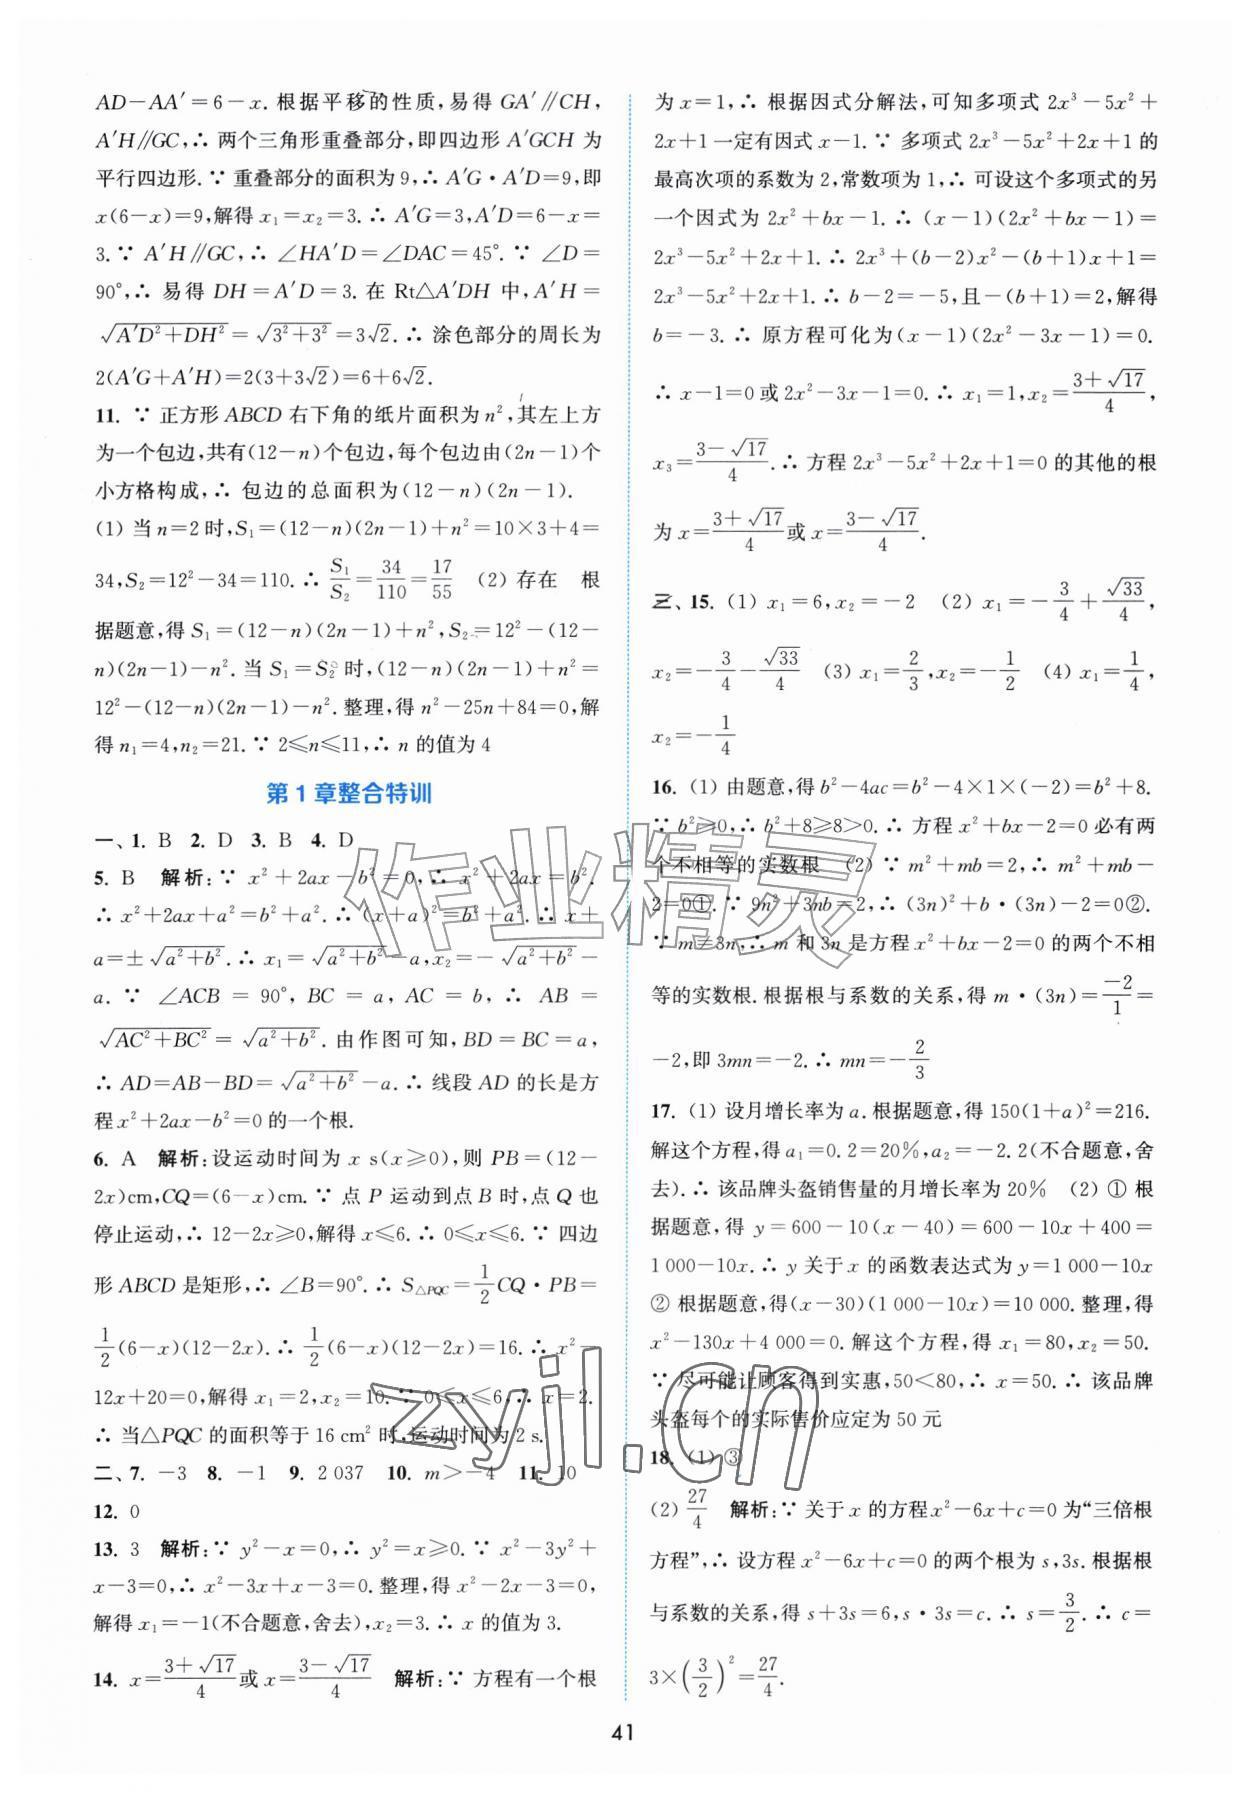 AD－AA′＝6－x. 根据平移的性质,易得 GA′∥CH,
A′H∥GC,∴ 两个三角形重叠部分,即四边形 A′GCH 为
平行四边形. ∵ 重叠部分的面积为 9,∴ A′G·A′D＝9,即
x(6－x)＝9,解得 x₁＝x₂＝3. ∴ A′G＝3,A′D＝6－x＝
3. ∵ A′H∥GC,∴ ∠HA′D＝∠DAC＝45°. ∵ ∠D＝
90°,∴ 易得 DH＝A′D＝3. 在 Rt△A′DH 中,A′H＝
√(A′D²＋DH²)＝√(3²＋3²)＝3√2. ∴ 涂色部分的周长为
2(A′G＋A′H)＝2(3＋3√2)＝6＋6√2.
11. ∵ 正方形 ABCD 右下角的纸片面积为 n²,其左上方
为一个包边,共有(12－n)个包边,每个包边由(2n－1)个
小方格构成,∴ 包边的总面积为(12－n)(2n－1).
(1) 当 n＝2 时,S₁＝(12－n)(2n－1)＋n²＝10×3＋4＝
34,S₂＝12²－34＝110. ∴ S₁/S₂＝34/110＝17/55 (2) 存在 根
据题意,得 S₁＝(12－n)(2n－1)＋n²,S₂＝12²－(12－
n)(2n－1)－n². 当 S₁＝S₂ 时,(12－n)(2n－1)＋n²＝
12²－(12－n)(2n－1)－n². 整理,得 n²－25n＋84＝0,解
得 n₁＝4,n₂＝21. ∵ 2≤n≤11,∴ n 的值为 4
第 1 章整合特训
一、1. B 2. D 3. B 4. D
5. B 解析:∵ x²＋2ax－b²＝0,∴ x²＋2ax＝b².
∴ x²＋2ax＋a²＝b²＋a². ∴ (x＋a)²＝b²＋a². ∴ x＋
a＝±√(a²＋b²). ∴ x₁＝√(a²＋b²)－a,x₂＝－√(a²＋b²)－
a. ∵ ∠ACB＝90°, BC＝a, AC＝b, ∴ AB＝
√(AC²＋BC²)＝√(a²＋b²). 由作图可知,BD＝BC＝a,
∴ AD＝AB－BD＝√(a²＋b²)－a. ∴ 线段 AD 的长是方
程 x²＋2ax－b²＝0 的一个根.
6. A 解析:设运动时间为 x s(x≥0),则 PB＝(12－
2x)cm,CQ＝(6－x)cm. ∵ 点 P 运动到点 B 时,点 Q 也
停止运动,∴ 12－2x≥0,解得 x≤6. ∴ 0≤x≤6. ∵ 四边
形 ABCD 是矩形,∴ ∠B＝90°. ∴ S△PQC＝1/2CQ·PB＝
1/2(6－x)(12－2x). ∴ 1/2(6－x)(12－2x)＝16. ∴ x²－
12x＋20＝0,解得 x₁＝2,x₂＝10. ∵ 0≤x≤6,∴ x＝2.
∴ 当△PQC 的面积等于 16 cm² 时,运动时间为 2 s.
二、7. －3 8. －1 9. 2 037 10. m＞－4 11. 10
12. 0
13. 3 解析:∵ y²－x＝0,∴ y²＝x≥0. ∵ x²－3y²＋
x－3＝0,∴ x²－3x＋x－3＝0. 整理,得 x²－2x－3＝0,
解得 x₁＝－1(不合题意,舍去),x₂＝3. ∴ x 的值为 3.
14. x＝(3＋√17)/4 或 x＝(3－√17)/4 解析:∵ 方程有一个根
为 x＝1,∴ 根据因式分解法,可知多项式 2x³－5x²＋
2x＋1 一定有因式 x－1. ∵ 多项式 2x³－5x²＋2x＋1 的
最高次项的系数为 2,常数项为 1,∴ 可设这个多项式的另
一个因式为 2x²＋bx－1. ∴ (x－1)(2x²＋bx－1)＝
2x³－5x²＋2x＋1. ∴ 2x³＋(b－2)x²－(b＋1)x＋1＝
2x³－5x²＋2x＋1. ∴ b－2＝－5,且－(b＋1)＝2,解得
b＝－3. ∴ 原方程可化为(x－1)(2x²－3x－1)＝0.
∴ x－1＝0 或 2x²－3x－1＝0. ∴ x₁＝1,x₂＝(3＋√17)/4,
x₃＝(3－√17)/4. ∴ 方程 2x³－5x²＋2x＋1＝0 的其他的根
为 x＝(3＋√17)/4 或 x＝(3－√17)/4.
三、15. (1) x₁＝6,x₂＝－2 (2) x₁＝－3/4＋√33/4,
x₂＝－3/4－√33/4 (3) x₁＝2/3,x₂＝－1/2 (4) x₁＝1/4,
x₂＝－1/4
16. (1) 由题意,得 b²－4ac＝b²－4×1×(－2)＝b²＋8.
∵ b²≥0,∴ b²＋8≥8＞0. ∴ 方程 x²＋bx－2＝0 必有两
个不相等的实数根 (2) ∵ m²＋mb＝2,∴ m²＋mb－
2＝0①. ∵ 9n²＋3nb＝2,∴ (3n)²＋b·(3n)－2＝0②.
∵ m≠3n,∴ m 和 3n 是方程 x²＋bx－2＝0 的两个不相
等的实数根. 根据根与系数的关系,得 m·(3n)＝－2/1＝
－2,即 3mn＝－2. ∴ mn＝－2/3
17. (1) 设月增长率为 a. 根据题意,得 150(1＋a)²＝216.
解这个方程,得 a₁＝0.2＝20％,a₂＝－2.2(不合题意,舍
去). ∴ 该品牌头盔销售量的月增长率为 20％ (2) ① 根
据题意,得 y＝600－10(x－40)＝600－10x＋400＝
1 000－10x. ∴ y 关于 x 的函数表达式为 y＝1 000－10x
② 根据题意,得(x－30)(1 000－10x)＝10 000. 整理,得
x²－130x＋4 000＝0. 解这个方程,得 x₁＝80,x₂＝50.
∵ 尽可能让顾客得到实惠,50＜80,∴ x＝50. ∴ 该品牌
头盔每个的实际售价应定为 50 元
18. (1) ③
(2) 27/4 解析:∵ 关于 x 的方程 x²－6x＋c＝0 为“三倍根
方程”,∴ 设方程 x²－6x＋c＝0 的两个根为 s,3s. 根据根
与系数的关系,得 s＋3s＝6,s·3s＝c. ∴ s＝3/2. ∴ c＝
3×(3/2)²＝27/4.
41
作业精灵
zyjl.cn